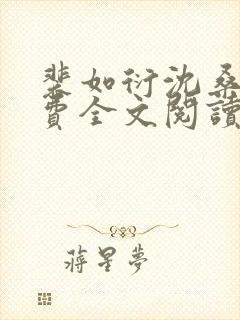 裴如衍沈桑
費全文閱讀
蔣星夢